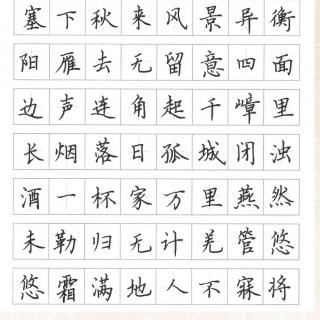 塞下秋来风景异衡
阳雁去无留意四面
边声连角起千嶂里
长烟落日孤城闭浊
酒一杯家万里燕然
未勒归无计羌管悠
悠霜满地人不寐将